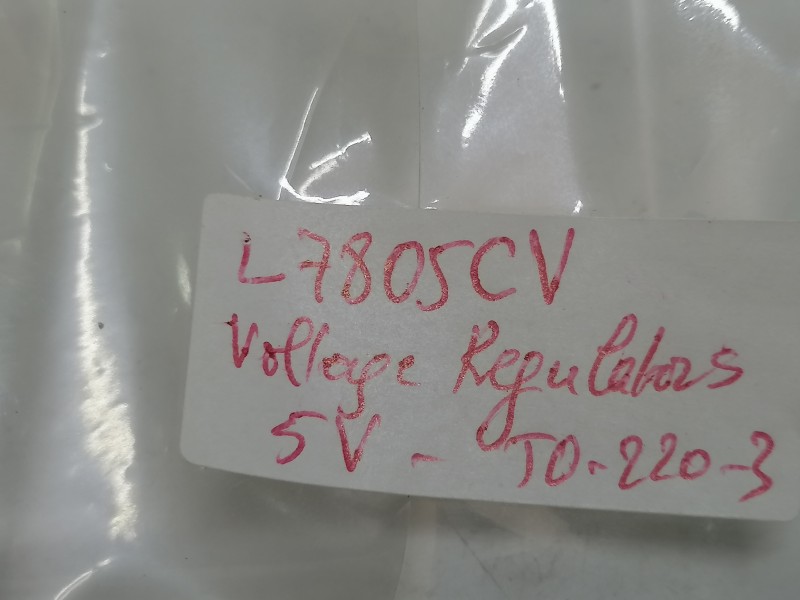 L7805CV
Voltage Regulators
5V - TO-220-3